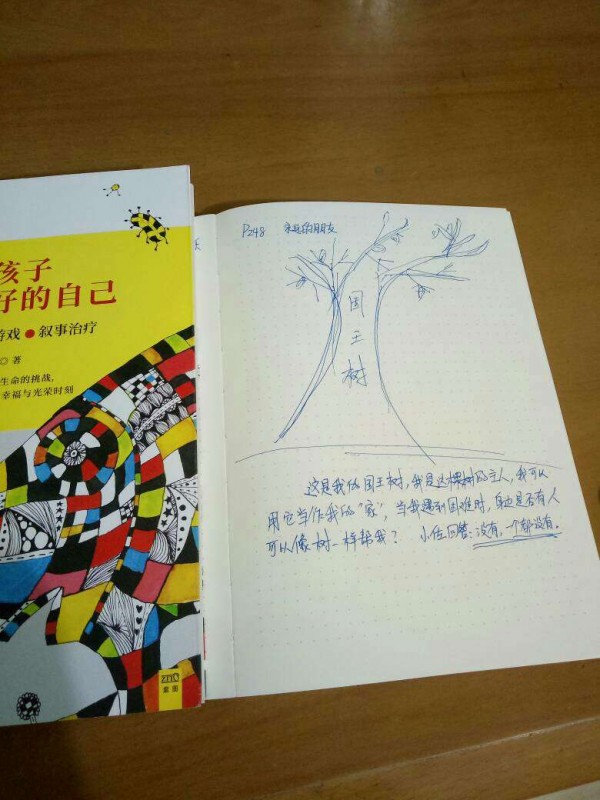 孩子
好的自己
游戏●叙事治疗
◎ 著
生命的挑战,
幸福与光荣时刻
P248 永远的朋友
国
王
树
这是我的国王树,我是这棵树的主人,我可以
用它当作我的“家”,当我遇到困难时,身边是否有人
可以像树一样帮我? 小伍回答:没有,一个都没有。